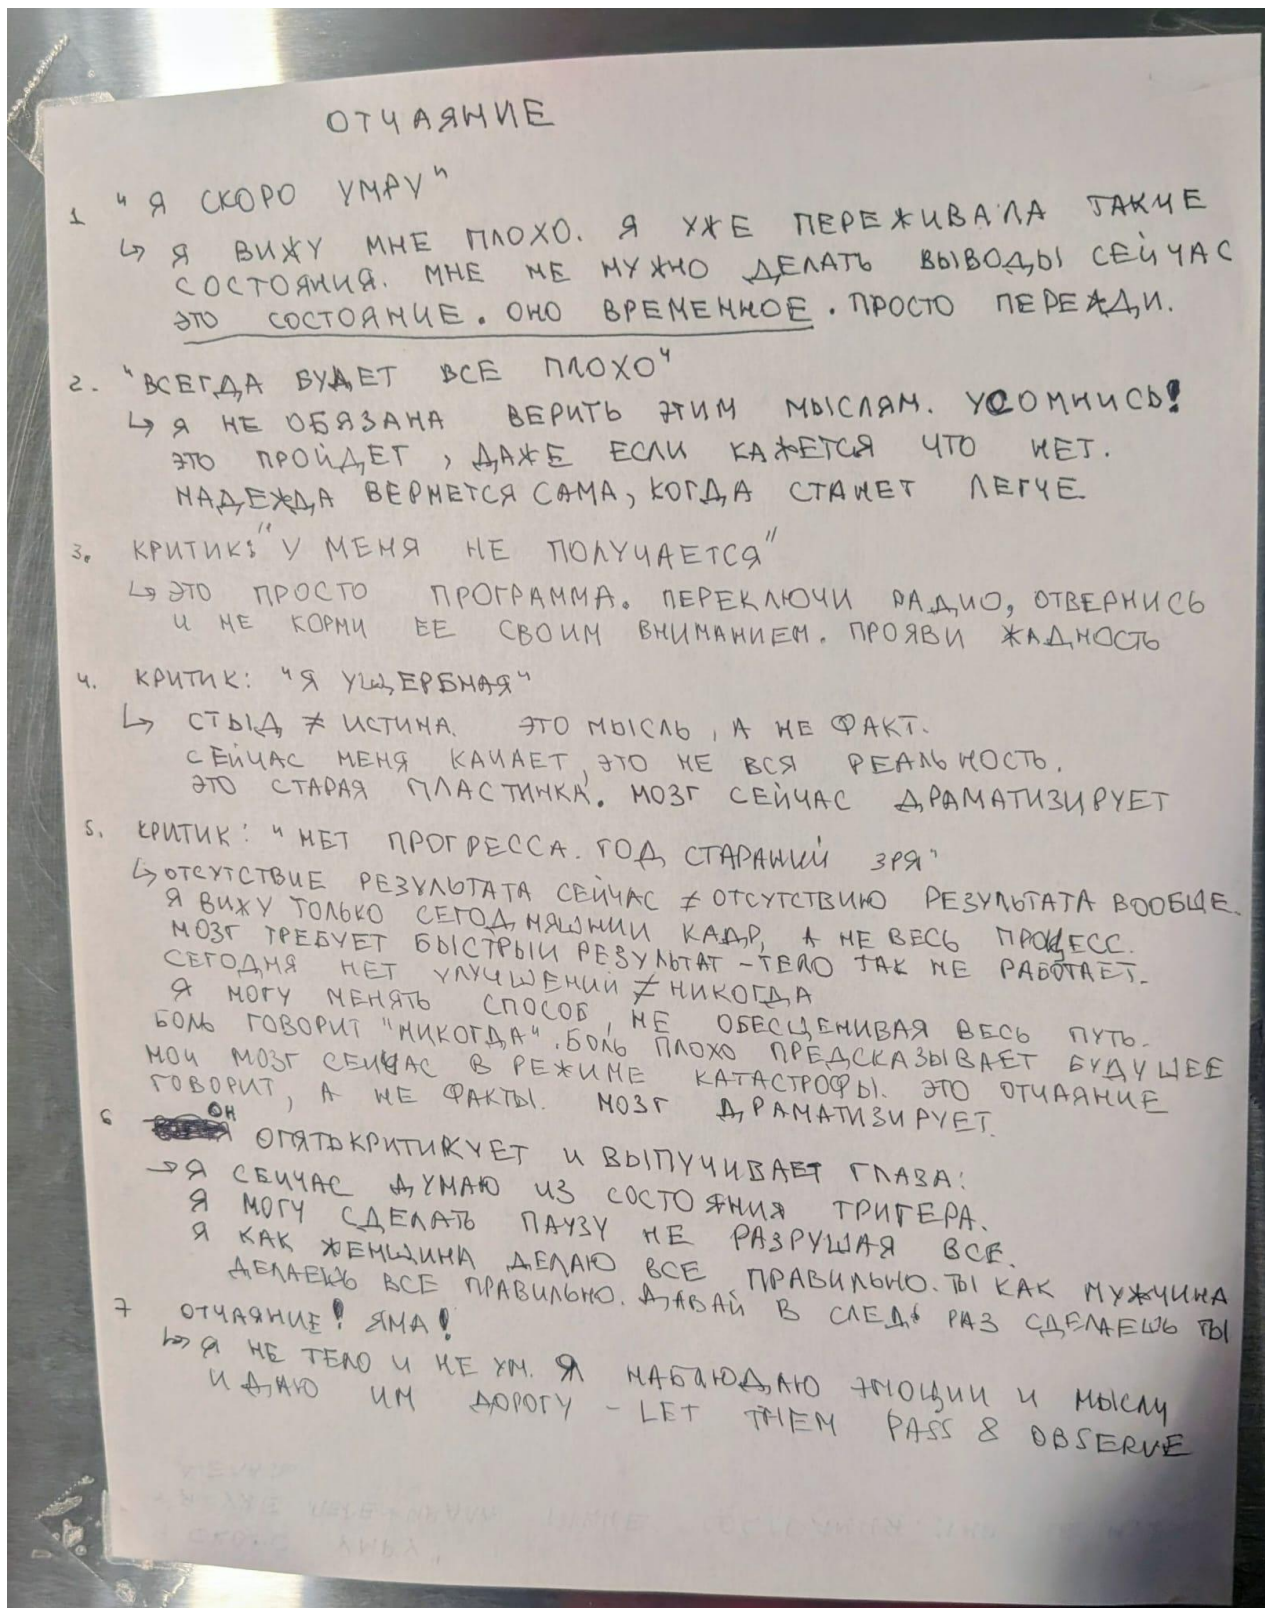 ОТЧАЯНИЕ
1 "Я СКОРО УМРУ"
↳ Я ВИЖУ МНЕ ПЛОХО. Я УЖЕ ПЕРЕЖИВАЛА ТАКИЕ
СОСТОЯНИЯ. МНЕ НЕ НУЖНО ДЕЛАТЬ ВЫВОДЫ СЕЙЧАС
ЭТО СОСТОЯНИЕ. ОНО ВРЕМЕННОЕ. ПРОСТО ПЕРЕЖДИ.
2. "ВСЕГДА БУДЕТ ВСЕ ПЛОХО"
↳ Я НЕ ОБЯЗАНА ВЕРИТЬ ЭТИМ МЫСЛЯМ. УСОМНИСЬ!
ЭТО ПРОЙДЕТ, ДАЖЕ ЕСЛИ КАЖЕТСЯ ЧТО НЕТ.
НАДЕЖДА ВЕРНЕТСЯ САМА, КОГДА СТАНЕТ ЛЕГЧЕ.
3. КРИТИК: "У МЕНЯ НЕ ПОЛУЧАЕТСЯ"
↳ ЭТО ПРОСТО ПРОГРАММА. ПЕРЕКЛЮЧИ РАДИО, ОТВЕРНИСЬ
И НЕ КОРМИ ЕЕ СВОИМ ВНИМАНИЕМ. ПРОЯВИ ЖАДНОСТЬ
4. КРИТИК: "Я УЩЕРБНАЯ"
↳ СТЫД ≠ ИСТИНА. ЭТО МЫСЛЬ, А НЕ ФАКТ.
СЕЙЧАС МЕНЯ КАЧАЕТ, ЭТО НЕ ВСЯ РЕАЛЬНОСТЬ.
ЭТО СТАРАЯ ПЛАСТИНКА. МОЗГ СЕЙЧАС ДРАМАТИЗИРУЕТ
5. КРИТИК: "НЕТ ПРОГРЕССА. ГОД СТАРАНИЙ ЗРЯ"
↳ ОТСУТСТВИЕ РЕЗУЛЬТАТА СЕЙЧАС ≠ ОТСУТСТВИЮ РЕЗУЛЬТАТА ВООБЩЕ.
Я ВИЖУ ТОЛЬКО СЕГОДНЯШНИЙ КАДР, А НЕ ВЕСЬ ПРОЦЕСС.
МОЗГ ТРЕБУЕТ БЫСТРЫЙ РЕЗУЛЬТАТ - ТЕЛО ТАК НЕ РАБОТАЕТ.
СЕГОДНЯ НЕТ УЛУЧШЕНИЙ ≠ НИКОГДА
Я МОГУ МЕНЯТЬ СПОСОБ, НЕ ОБЕСЦЕНИВАЯ ВЕСЬ ПУТЬ.
БОЛЬ ГОВОРИТ "НИКОГДА". БОЛЬ ПЛОХО ПРЕДСКАЗЫВАЕТ БУДУЩЕЕ
МОЙ МОЗГ СЕЙЧАС В РЕЖИМЕ КАТАСТРОФЫ. ЭТО ОТЧАЯНИЕ
ГОВОРИТ, А НЕ ФАКТЫ. МОЗГ ДРАМАТИЗИРУЕТ.
6 ОН ОПЯТЬ КРИТИКУЕТ И ВЫПУЧИВАЕТ ГЛАЗА:
→ Я СЕЙЧАС ДУМАЮ ИЗ СОСТОЯНИЯ ТРИГЕРА.
Я МОГУ СДЕЛАТЬ ПАУЗУ НЕ РАЗРУШАЯ ВСЕ.
Я КАК ЖЕНЩИНА ДЕЛАЮ ВСЕ ПРАВИЛЬНО. ТЫ КАК МУЖЧИНА
ДЕЛАЕШЬ ВСЕ ПРАВИЛЬНО. ДАВАЙ В СЛЕД. РАЗ СДЕЛАЕШЬ ТЫ
7 ОТЧАЯНИЕ! ЯМА!
↳ Я НЕ ТЕЛО И НЕ УМ. Я НАБЛЮДАЮ ЭМОЦИИ И МЫСЛИ
И ДАЮ ИМ ДОРОГУ - LET THEM PASS & OBSERVE